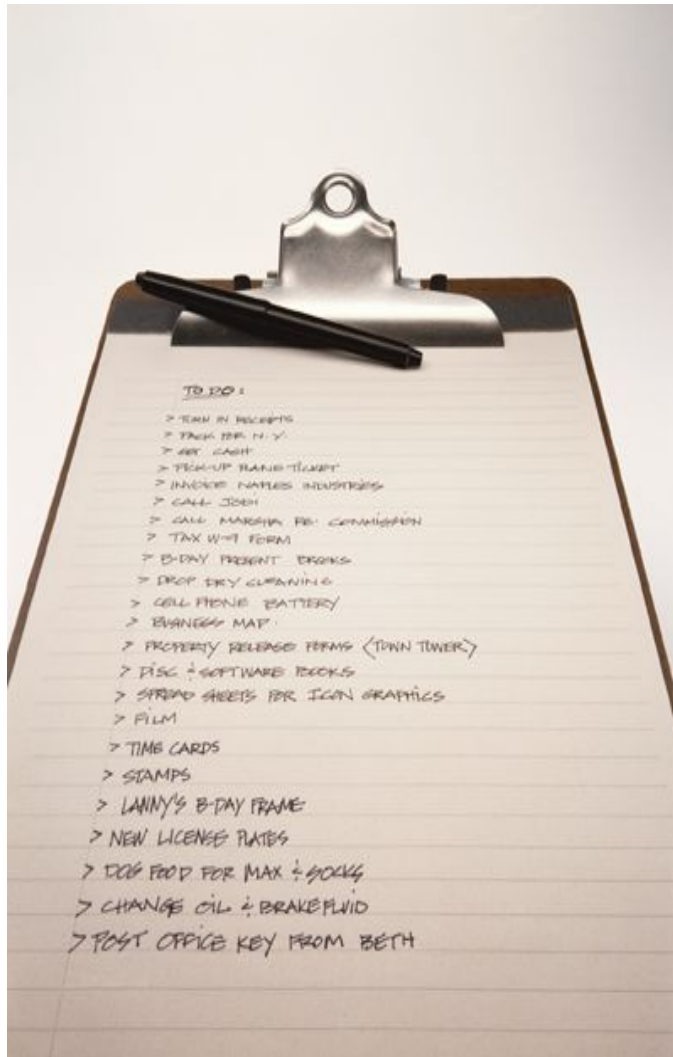 TO DO:
> TURN IN RECEIPTS
> PACK FOR N.Y.
> GET CASH
> PICK-UP PLANE TICKET
> INVOICE NAPLES INDUSTRIES
> CALL JODI
> CALL MARSHA RE: COMMISSION
> TAX W-9 FORM
> B-DAY PRESENT BROOKS
> DROP DRY CLEANING
> CELL PHONE BATTERY
> BUSINESS MAP
> PROPERTY RELEASE FORMS (TOWN TOWER)
> DISC & SOFTWARE BOOKS
> SPREAD SHEETS FOR ICON GRAPHICS
> FILM
> TIME CARDS
> STAMPS
> LANNY'S B-DAY FRAME
> NEW LICENSE PLATES
> DOG FOOD FOR MAX & SOCKS
> CHANGE OIL & BRAKE FLUID
> POST OFFICE KEY FROM BETH